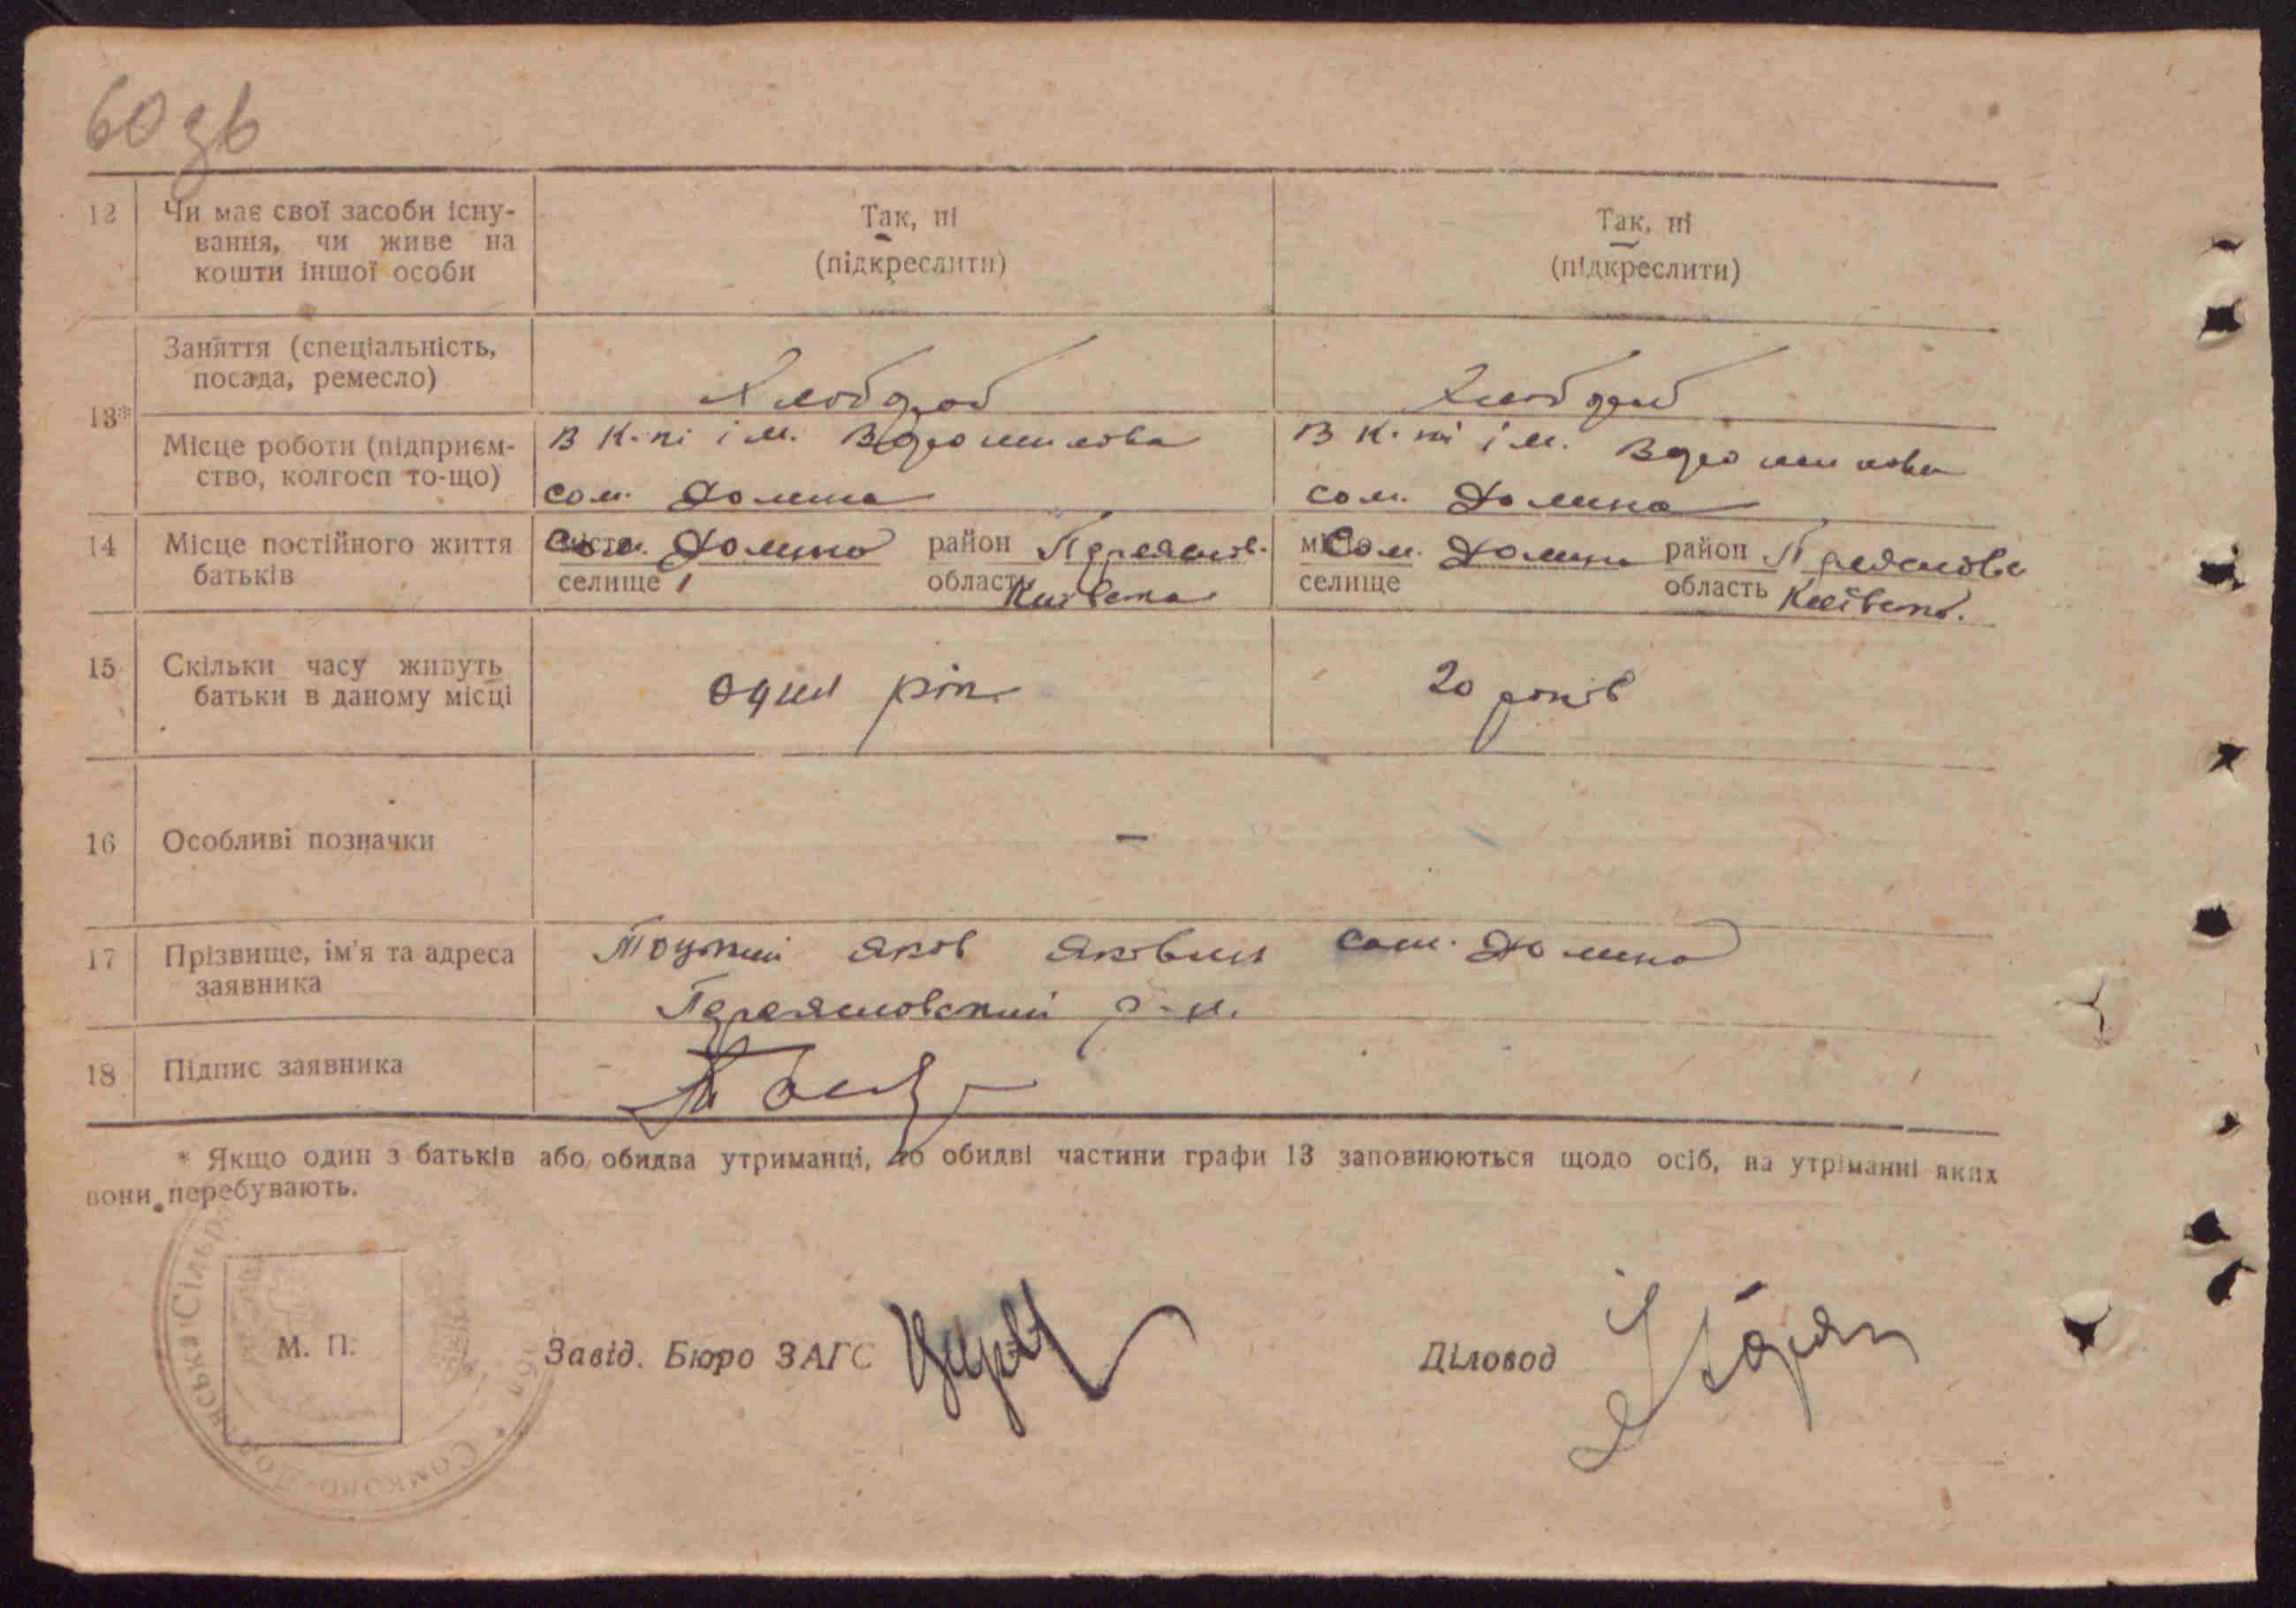 60 зв
12 Чи має свої засоби існу-
вання, чи живе на
кошти іншої особи
Так, ні
(підкреслити)
Так, ні
(підкреслити)
13*
Заняття (спеціальність,
посада, ремесло)
Хлебороб
Хлебороб
Місце роботи (підприєм-
ство, колгосп то-що)
В к-пі ім. Ворошилова
сом. Долина
В к-пі ім. Ворошилова
сом. Долина
14 Місце постійного життя
батьків
місто Сом. Долина район Переяслов.
селище область Київська
місто Сом. Долина район Переяслов
селище область Київська.
15 Скільки часу живуть
батьки в даному місці
один рік
20 років
16 Особливі позначки
–
17 Прізвище, ім'я та адреса
заявника
Яков Якович Сом. Долина
Переясловский р-н.
18 Підпис заявника
* Якщо один з батьків або обидва утриманці, то обидві частини графи 13 заповнюються щодо осіб, на утріманні яких
вони перебувають.
М. П.
Завід. Бюро ЗАГС
Діловод